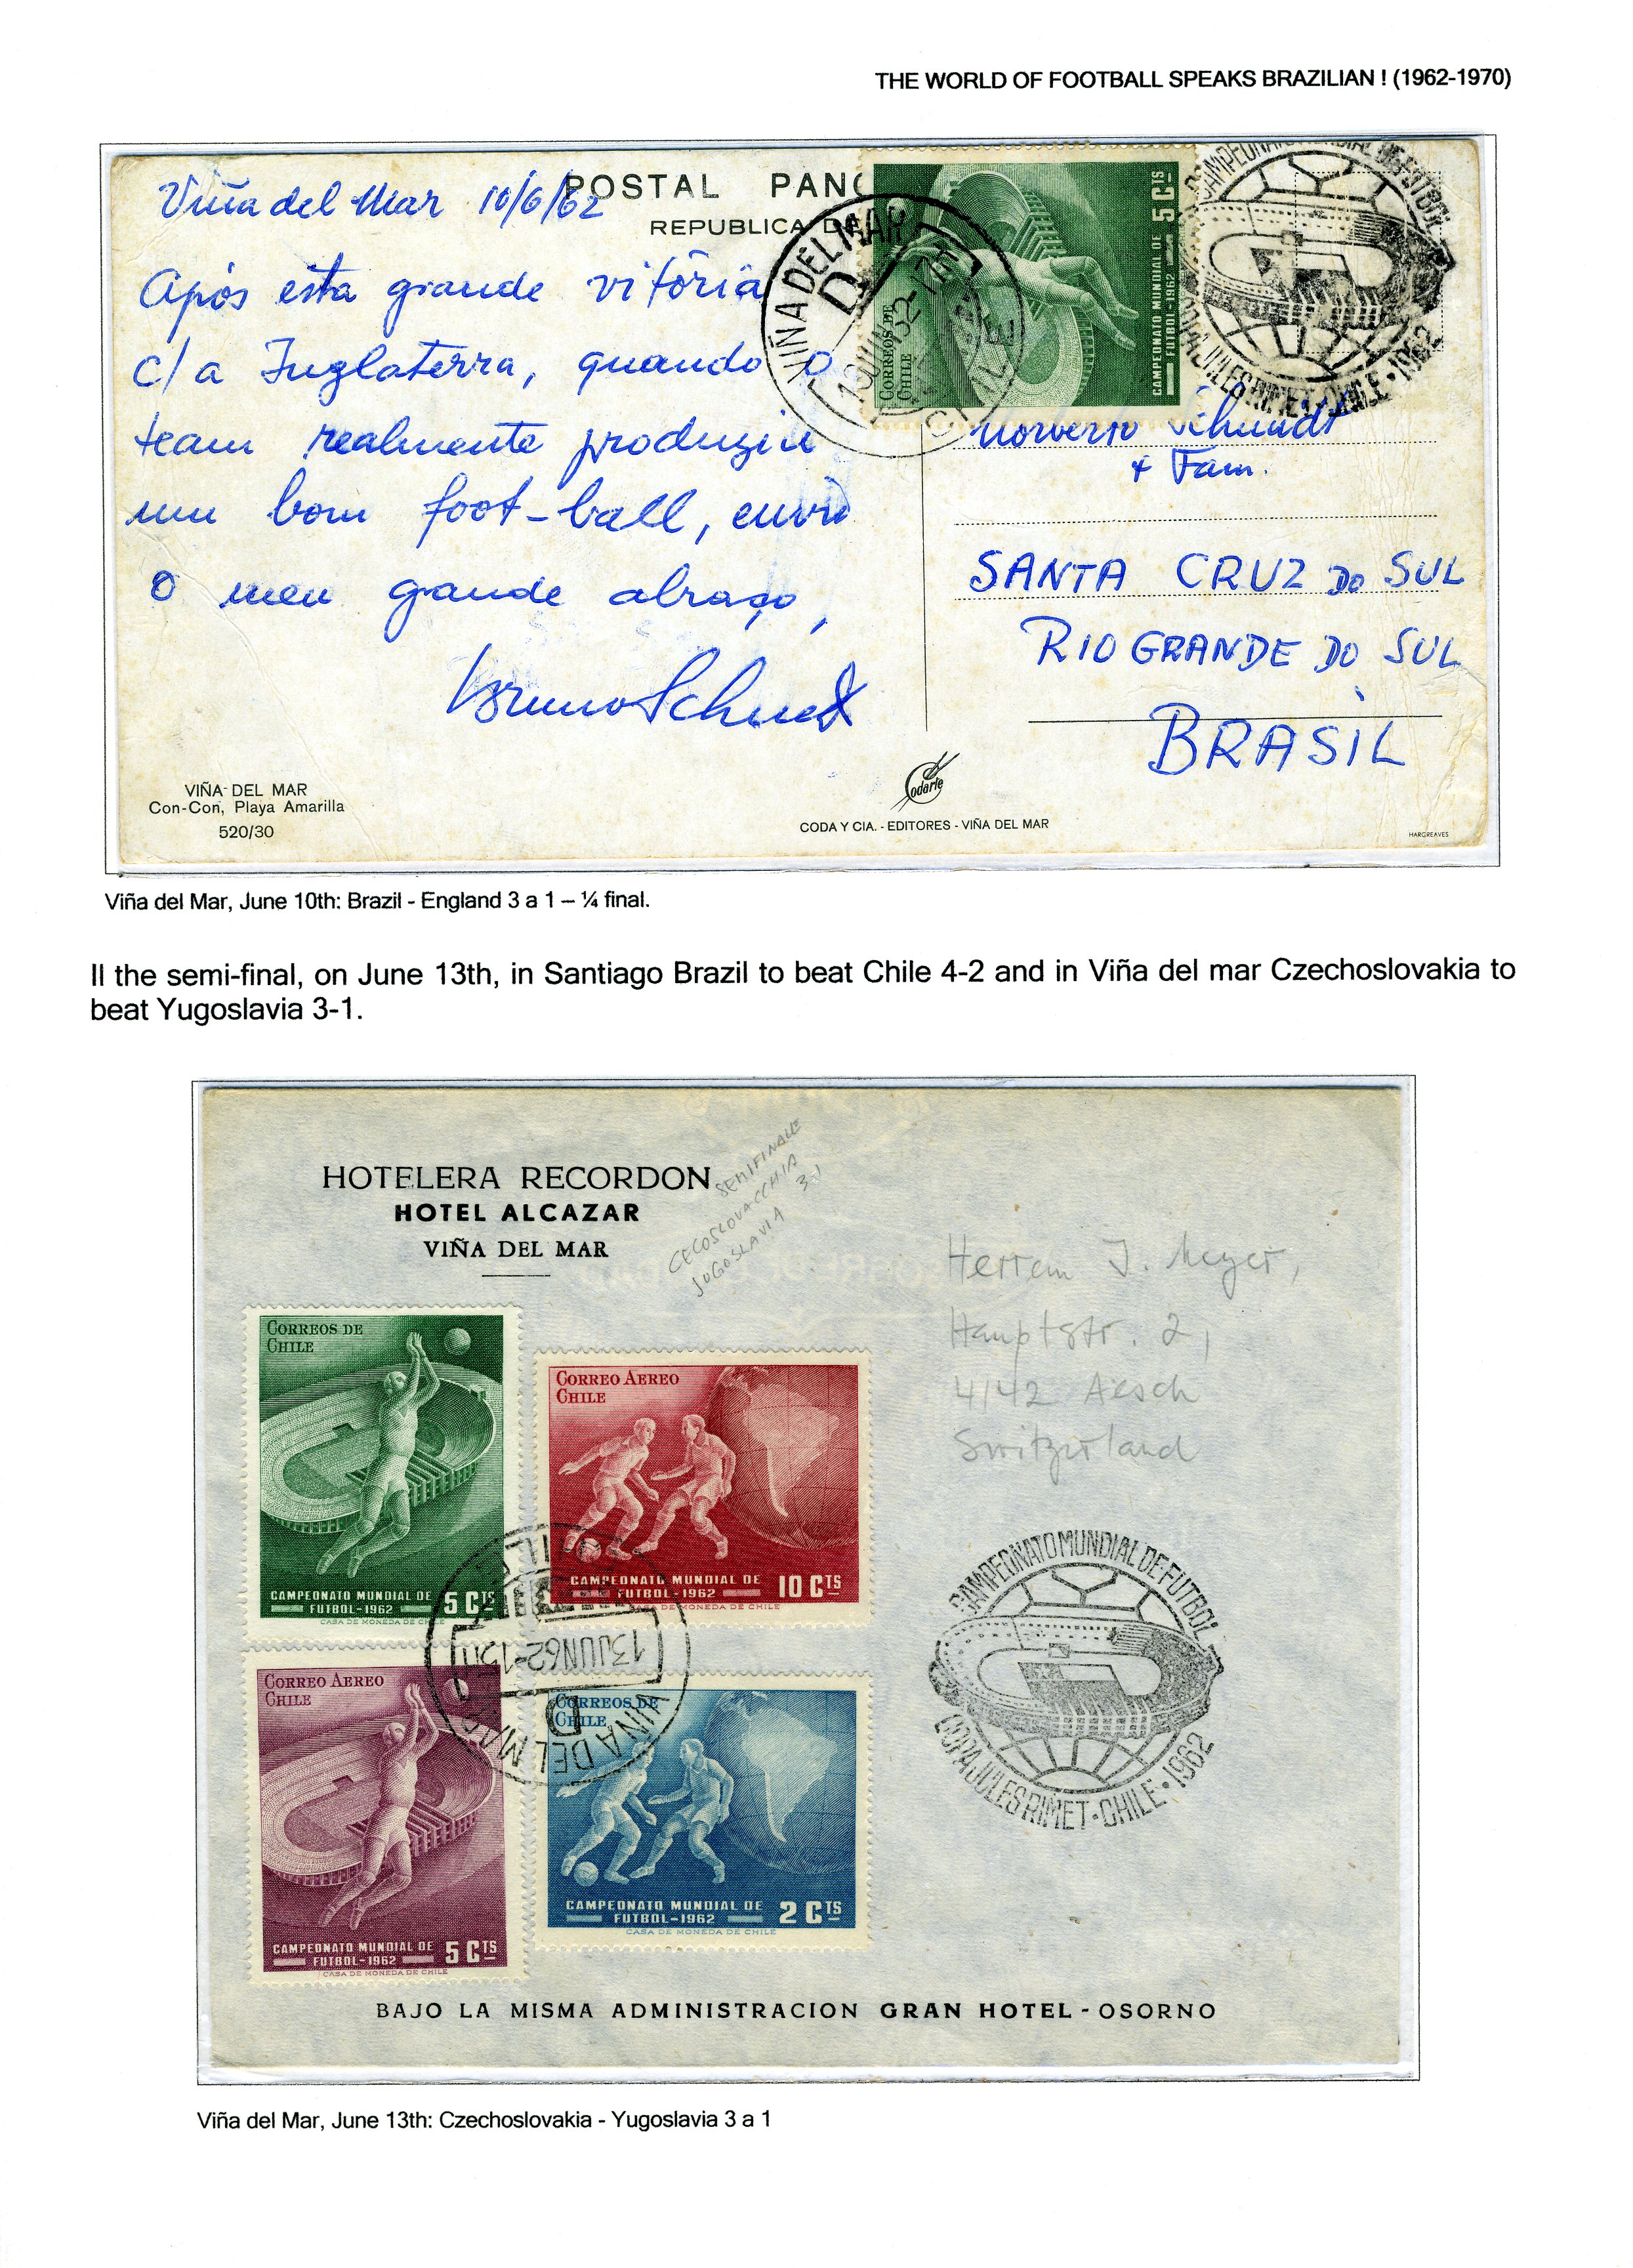 THE WORLD OF FOOTBALL SPEAKS BRAZILIAN ! (1962-1970)
POSTAL PANO
REPUBLICA DE
Viña del Mar 10/6/62
Após esta grande vitória
c/a Inglaterra, quando o
team realmente produziu
um bom foot-ball, envio
o meu grande abraço,
Bruno Schmidt
VIÑA DEL MAR
Con-Con, Playa Amarilla
520/30
VIÑA DEL MAR
D
CHILE
CORREOS DE
CHILE
CAMPEONATO MUNDIAL DE
FUTBOL-1962
5 CTS
CAMPEONATO MUNDIAL DE FUTBOL
COPA JULES RIMET · CHILE · 1962
Norberto Schmidt
+ Fam.
SANTA CRUZ DO SUL
RIO GRANDE DO SUL
BRASIL
Codarte
CODA Y CIA. - EDITORES - VIÑA DEL MAR
HARGREAVES
Viña del Mar, June 10th: Brazil - England 3 a 1 – ¼ final.
II the semi-final, on June 13th, in Santiago Brazil to beat Chile 4-2 and in Viña del mar Czechoslovakia to
beat Yugoslavia 3-1.
HOTELERA RECORDON
HOTEL ALCAZAR
VIÑA DEL MAR
SEMIFINALE
CECOSLOVACCHIA
JUGOSLAVIA 3-1
Herren J. Meyer,
Hauptstr. 2,
4142 Aesch
Switzerland
CORREOS DE
CHILE
CAMPEONATO MUNDIAL DE
FUTBOL-1962
5 CTS
CASA DE MONEDA DE CHILE
CORREO AEREO
CHILE
CAMPEONATO MUNDIAL DE
FUTBOL-1962
10 CTS
CASA DE MONEDA DE CHILE
VIÑA DEL MAR
D
13JUN62-15H
CHILE
CORREO AEREO
CHILE
CAMPEONATO MUNDIAL DE
FUTBOL-1962
5 CTS
CASA DE MONEDA DE CHILE
CORREOS DE
CHILE
CAMPEONATO MUNDIAL DE
FUTBOL-1962
2 CTS
CASA DE MONEDA DE CHILE
CAMPEONATO MUNDIAL DE FUTBOL
COPA JULES RIMET · CHILE · 1962
BAJO LA MISMA ADMINISTRACION GRAN HOTEL - OSORNO
Viña del Mar, June 13th: Czechoslovakia - Yugoslavia 3 a 1